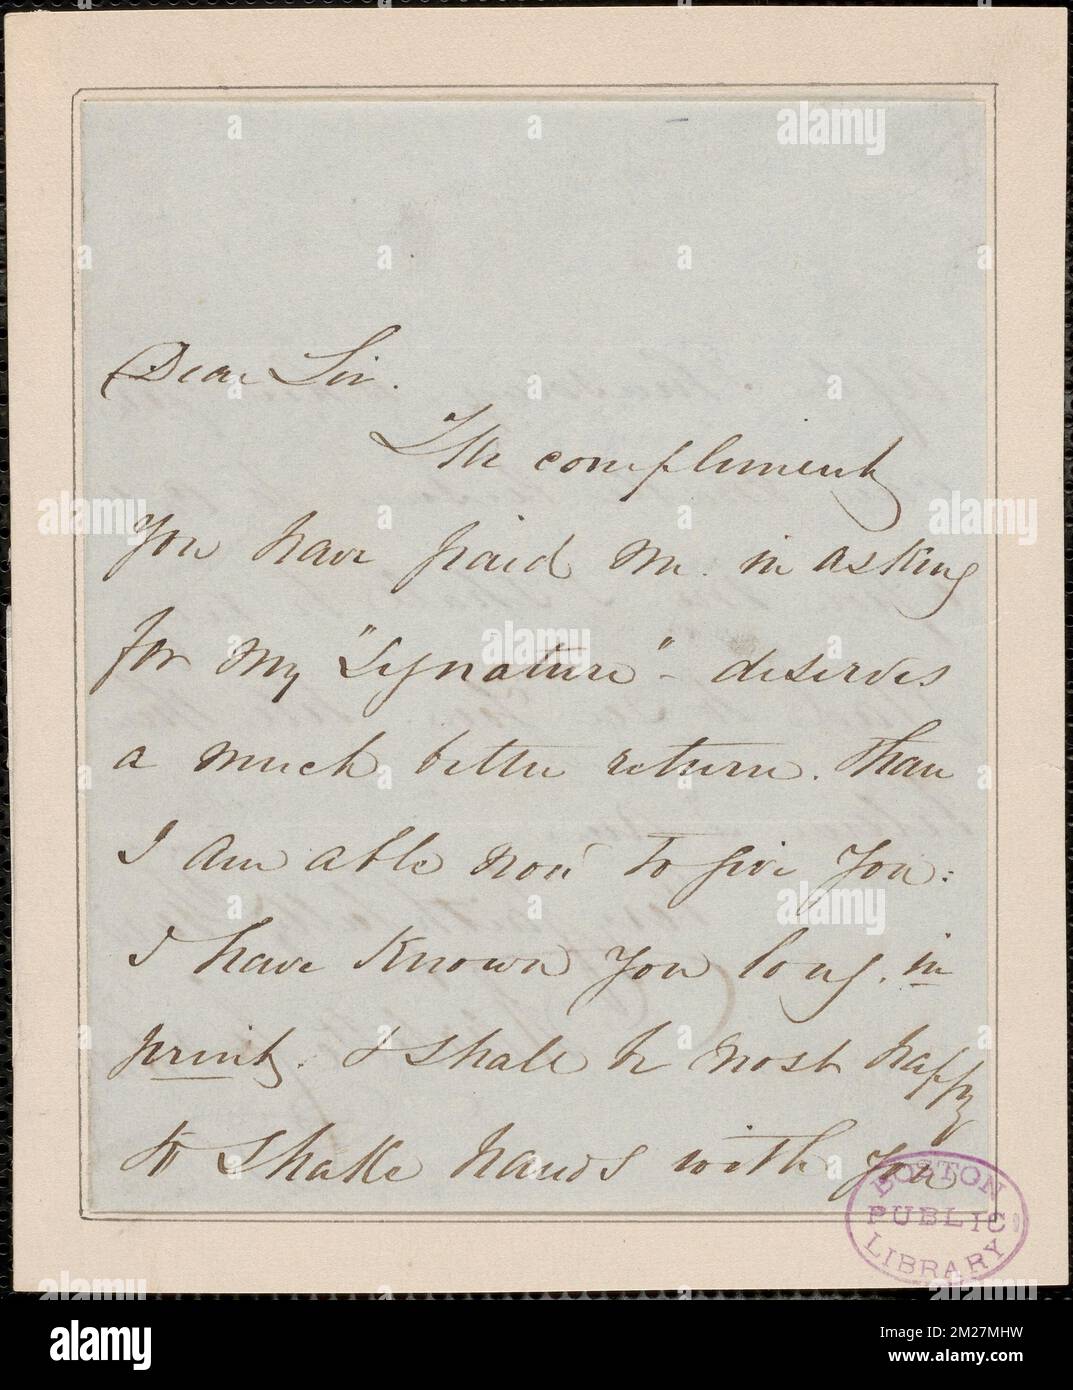 Dear Sir.
The compliment
you have paid me in asking
for my "signature" - deserves
a much better return. than
I am able now to give you:
I have known you long, in
print. I shall be most happy
to shake hands with you
BOSTON
PUBLIC
LIBRARY
alamy
Image ID: 2M27MHW
www.alamy.com